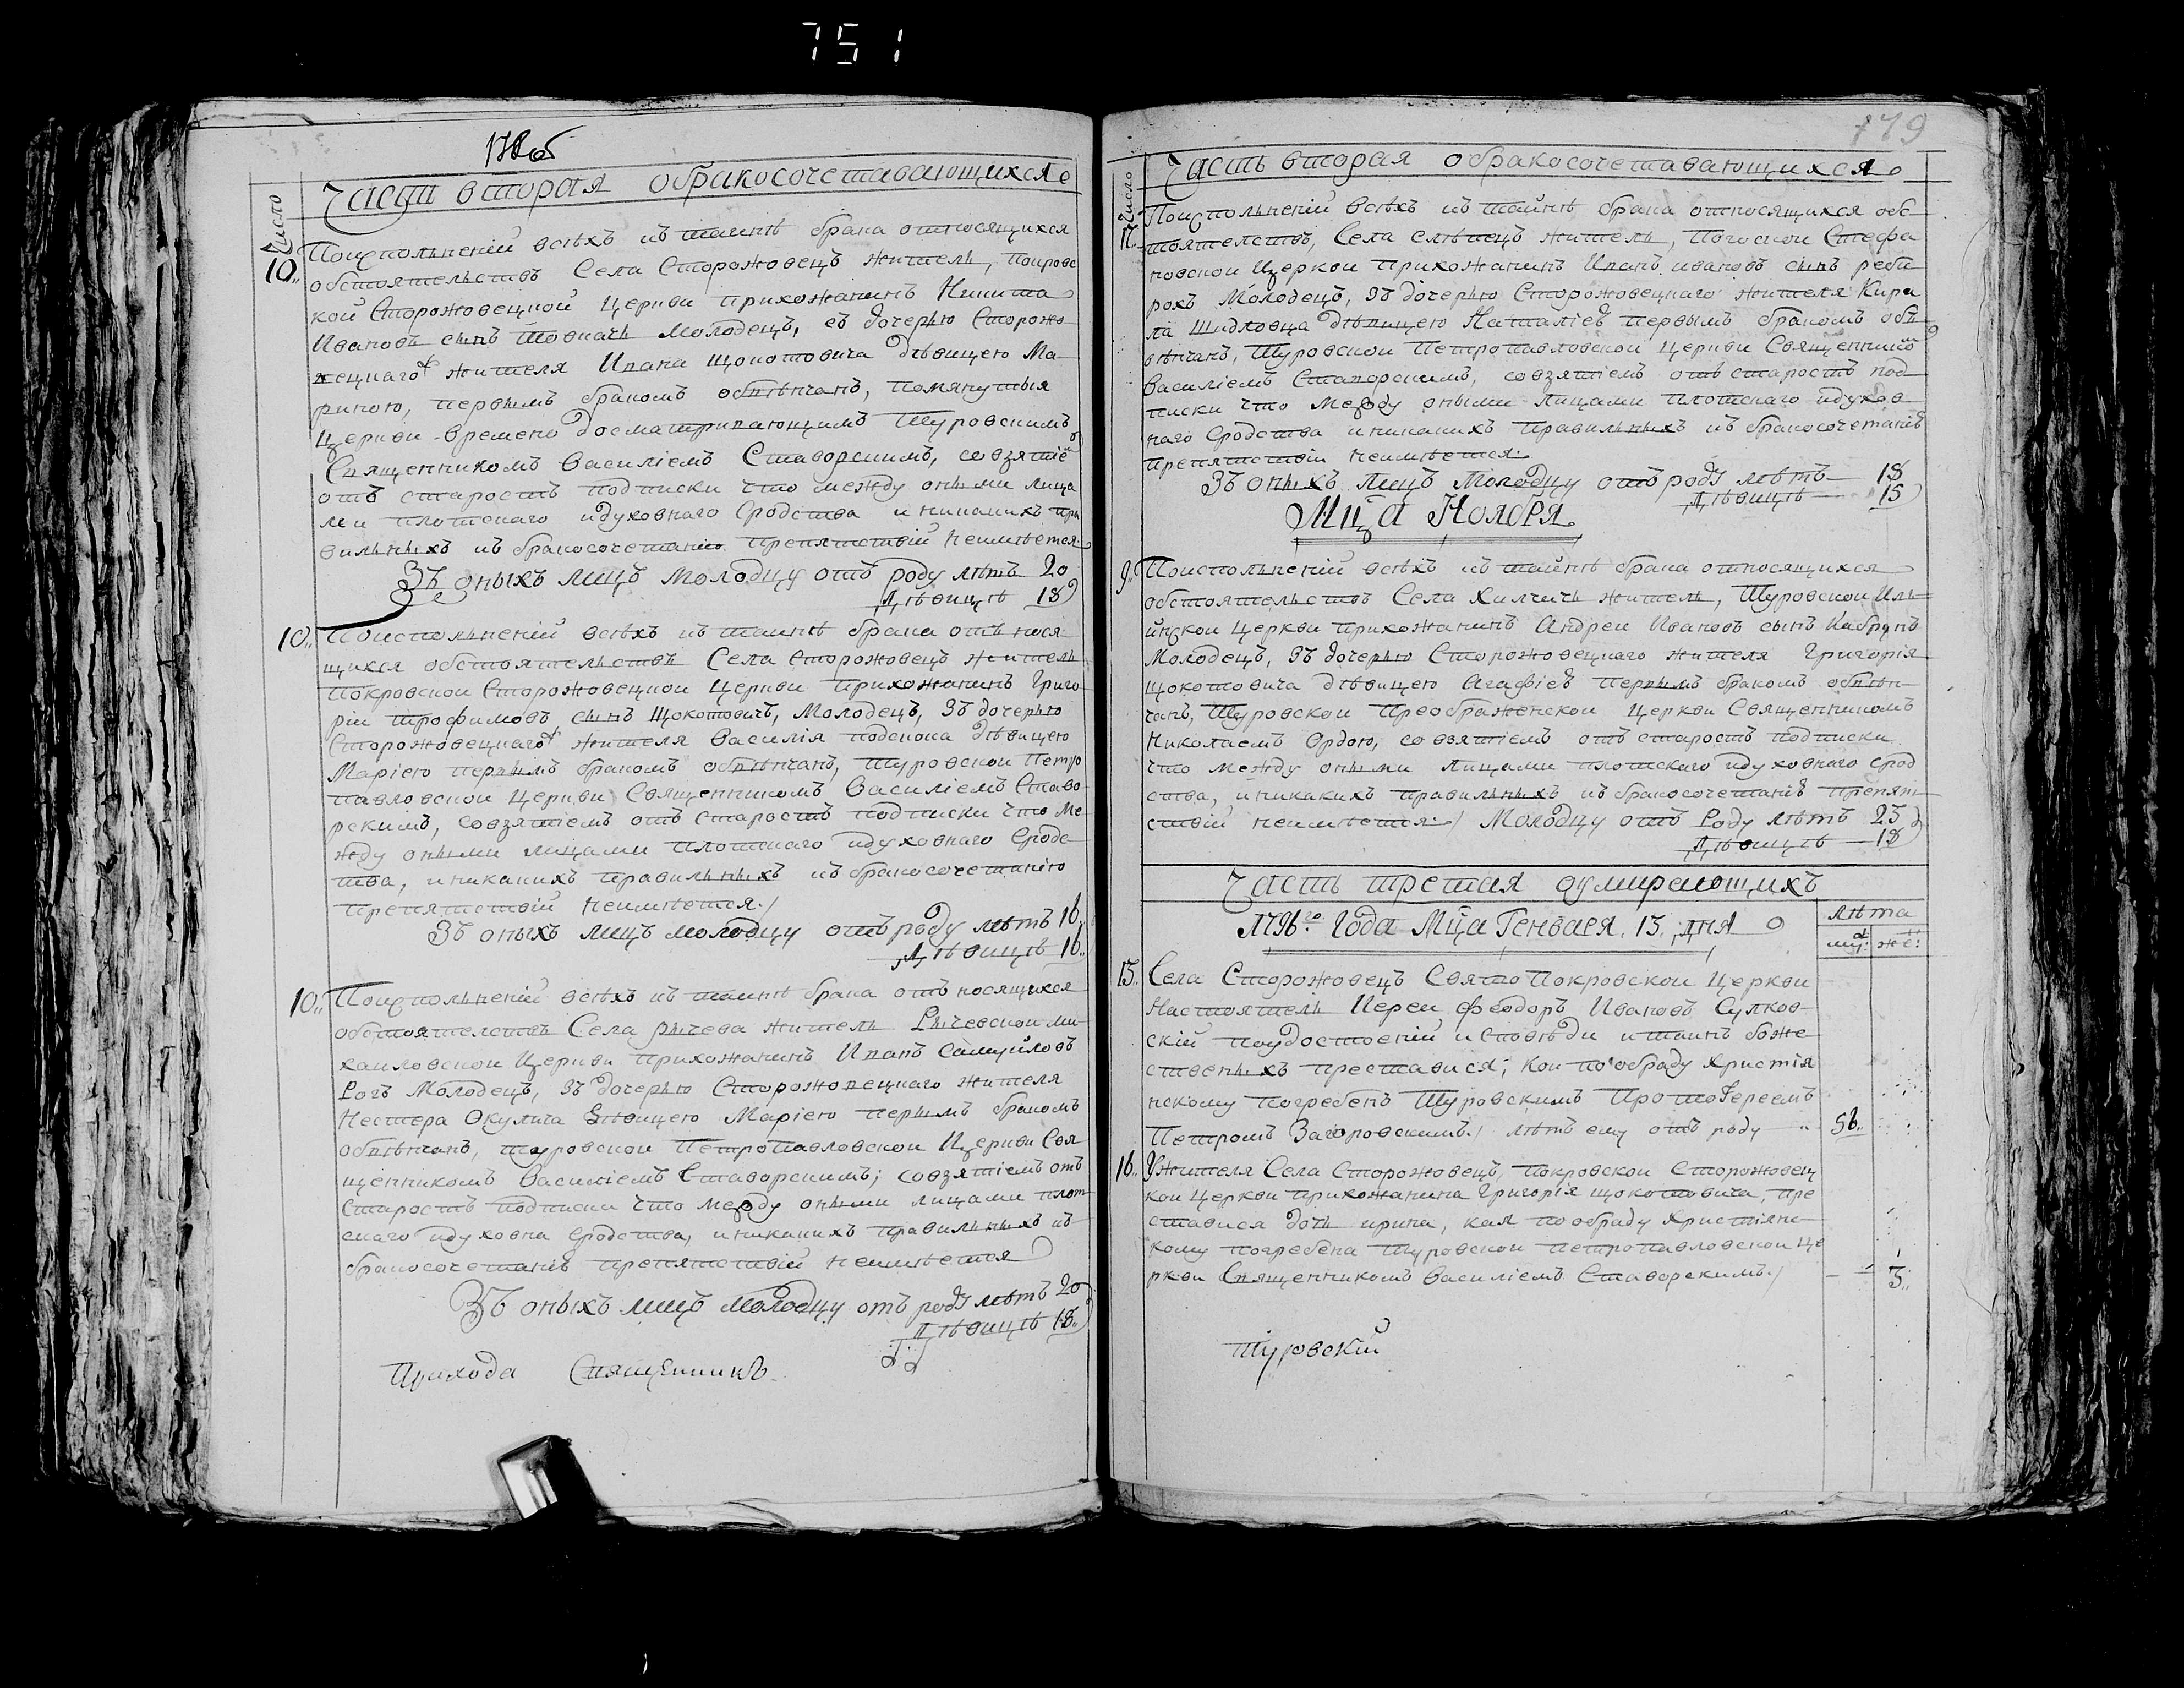 751
178об
Часть вторая обракосочетавающихся
Число
10. Поисполнении всѣхъ къ таинѣ брака относящихся
обстоятельствъ Села Сторожовецъ житель, покровс
кой Сторожовецкой Церкви прихожанинъ Никита
Ивановъ сынъ Товкачь Молодецъ, съ дочерью Сторожо
вецкаго жителя Ивана Щокотовича дѣвицею Ма
риною, первымъ бракомъ обвѣнчанъ, помянутыя
Церкви времено досматривающимъ Туровскимъ
Священникомъ Василіемъ Ставорскимъ, совзятіе
отъ старостъ подписки что между оными лица
ми плотскаго идуховнаго Сродства иникакихъ пра
вильныхъ къ бракосочетанию препятствій неимѣется
Зъ оныхъ лицъ молодцу отъ роду лѣтъ 20
дѣвицѣ 18
10. Поисполнении всѣхъ къ таинѣ брака отъ нося
щихся обстоятельствъ Села Сторожовецъ житель
Покровской Сторожовецкой Церкви прихожанинъ Григо
рій трофимовъ сынъ Щокотовичъ, Молодецъ, Зъ дочерью
Сторожовецкаго жителя Василія подскока дѣвицею
Маріею первымъ бракомъ обвѣнчанъ, туровской Петро
павловской Церкви Священникомъ Василіемъ Ставо
рскимъ, совзятіемъ отъ Старостъ подписки что Ме
жду оными лицами плотскаго идуховнаго Сродс
тва, иникакихъ правильныхъ къ бракосочетанію
препятствій неимѣется
Зъ оныхъ лицъ молодцу отъ роду лѣтъ 16
дѣвицѣ 16
10. Поисполнении всѣхъ къ таинѣ брака отъ носящихся
обстоятелствъ Села рычева житель Рычевской ми
хаиловской Церкви прихожанинъ Иванъ Самуйловъ
Рогъ Молодецъ, зъ дочерью Сторожовецкаго жителя
Нестера Окулича дѣвицею Маріею первымъ бракомъ
обвѣнчанъ, туровской Петропавловской Церкви Свя
щенникомъ Василіемъ Ставорскимъ; совзятіемъ отъ
Старостъ подписки что между оными лицами плот
скаго идуховна Сродства, иникакихъ правильныхъ къ
бракосочетанію препятствій неимѣется
Зъ оныхъ лицъ молодцу отъ роду лѣтъ 20
дѣвицѣ 18
Прихода Священникъ
179
Часть вторая обракосочетавающихся
Число
Поисполнении всѣхъ къ таинѣ брака относящихся обс
тоятелствъ, Села слѣпецъ житель, Погоской Стефа
новской Церкви прихожанинъ Иванъ ивановъ сынъ реби
рохъ Молодецъ, зъ дочерью Сторожовецкаго жителя Кири
ла Шидловца дѣвицею Наталіею первымъ бракомъ об
вѣнчанъ, Туровской Петропавловской Церкви Священнико
Василіемъ Ставорскимъ, совзятіемъ отъ старостъ под
писки что между оными лицами плотскаго идухов
наго Сродства иникакихъ правильныхъ къ бракосочетанію
препятствій неимѣется
Зъ оныхъ лицъ Молодцу отъ роду лѣтъ 18
дѣвицѣ 15
Мца Ноября
9. Поисполнении всѣхъ къ таинѣ брака относящихся
обстоятельствъ Села Хилчичь житель, Туровской Иль
инской Церкви прихожанинъ Андреи Ивановъ сынъ Кабрунъ
Молодецъ, зъ дочерью Сторожовецкаго жителя Григорія
Щокотовича дѣвицею Агафіею первымъ бракомъ обвѣн
чанъ, Туровской Преображенской Церкви Священникомъ
Николаемъ Ордою, совзятіемъ отъ старостъ подписки
что между оными лицами плотскаго идуховнаго срод
ства, иникакихъ правильныхъ къ бракосочетанію препят
ствій неимѣется Молодцу отъ Роду лѣтъ 25
дѣвицѣ 18
Часть третая оумирающихъ
1796го Года Мца Генваря 15 дня
лѣта
муж: же:
15. Села Сторожовецъ Свято Покровской Церкви
Настоятель Иереи Феодоръ Ивановъ Сулков
скій поудостоеній исповѣди итаинъ боже
ственыхъ преставися; кои по обраду христія
нскому погребенъ Туровскимъ Протоіереемъ
Петромъ Загоровскимъ лѣтъ ему отъ роду 56
16. Ужителя Села Сторожовецъ, Покровской Сторожовец
кои Церкви прихожанина Григорія Щокотовича, пре
ставися дочь ирина, кая пообраду Христіянс
кому погребена Туровской петропавловской Це
ркви Священникомъ Василіемъ Ставорскимъ 3
Туровскій